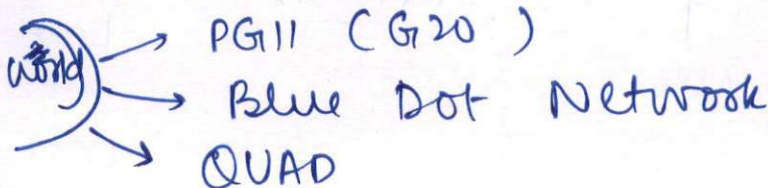 World → PGII (G20)
→ Blue Dot Network
→ QUAD